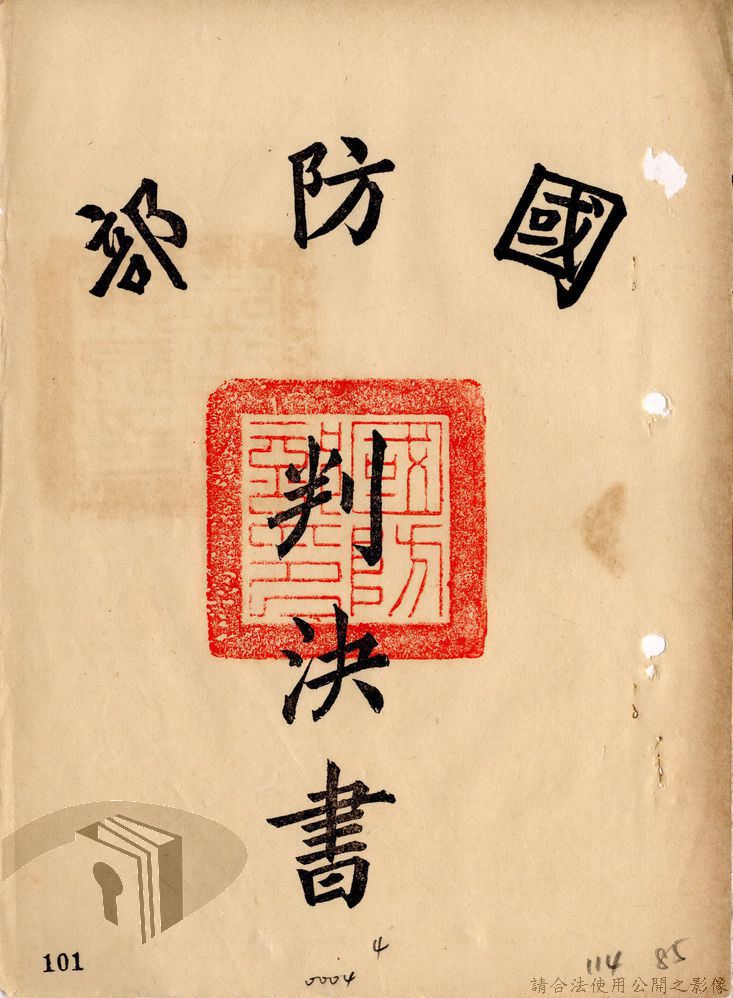 國防部
國防
部印
判決書
101
0004
4
114 85
請合法使用公開之影像